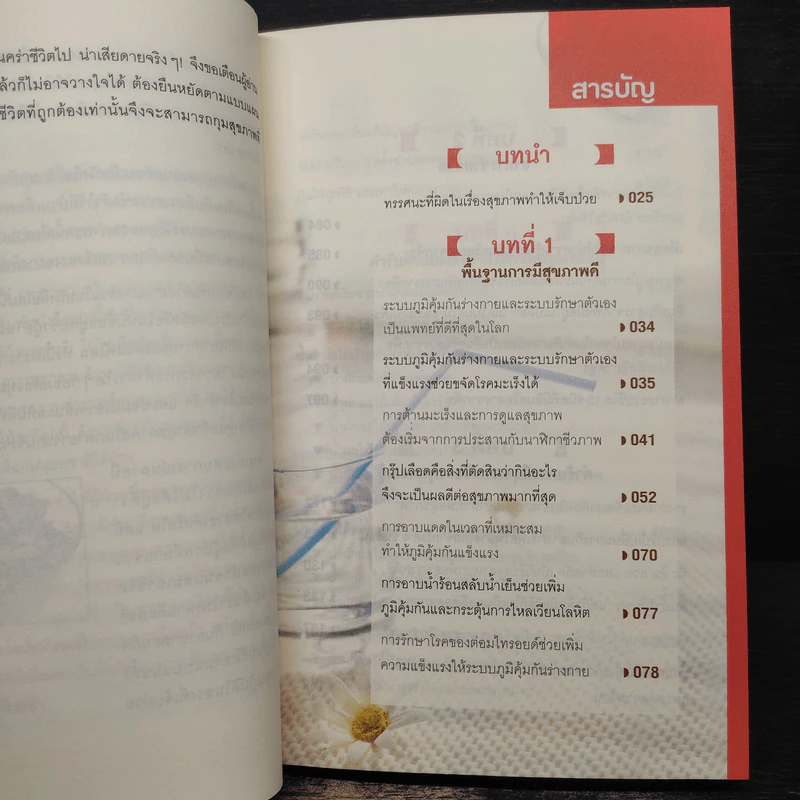 นคร่าชีวิตไป น่าเสียดายจริงๆ! จึงขอเตือนผู้อ่าน
ล้วก็ไม่อาจวางใจได้ ต้องยืนหยัดตามแบบแผน
ชีวิตที่ถูกต้องเท่านั้นจึงจะสามารถกุมสุขภาพดี
สารบัญ
บทนำ
ทรรศนะที่ผิดในเรื่องสุขภาพทำให้เจ็บป่วย 025
บทที่ 1
พื้นฐานการมีสุขภาพดี
ระบบภูมิคุ้มกันร่างกายและระบบรักษาตัวเอง
เป็นแพทย์ที่ดีที่สุดในโลก 034
ระบบภูมิคุ้มกันร่างกายและระบบรักษาตัวเอง
ที่แข็งแรงช่วยขจัดโรคมะเร็งได้ 035
การต้านมะเร็งและการดูแลสุขภาพ
ต้องเริ่มจากการประสานกับนาฬิกาชีวภาพ 041
กรุ๊ปเลือดคือสิ่งที่ตัดสินว่ากินอะไร
จึงจะเป็นผลดีต่อสุขภาพมากที่สุด 052
การอาบแดดในเวลาที่เหมาะสม
ทำให้ภูมิคุ้มกันแข็งแรง 070
การอาบน้ำร้อนสลับน้ำเย็นช่วยเพิ่ม
ภูมิคุ้มกันและกระตุ้นการไหลเวียนโลหิต 077
การรักษาโรคของต่อมไทรอยด์ช่วยเพิ่ม
ความแข็งแรงให้ระบบภูมิคุ้มกันร่างกาย 078